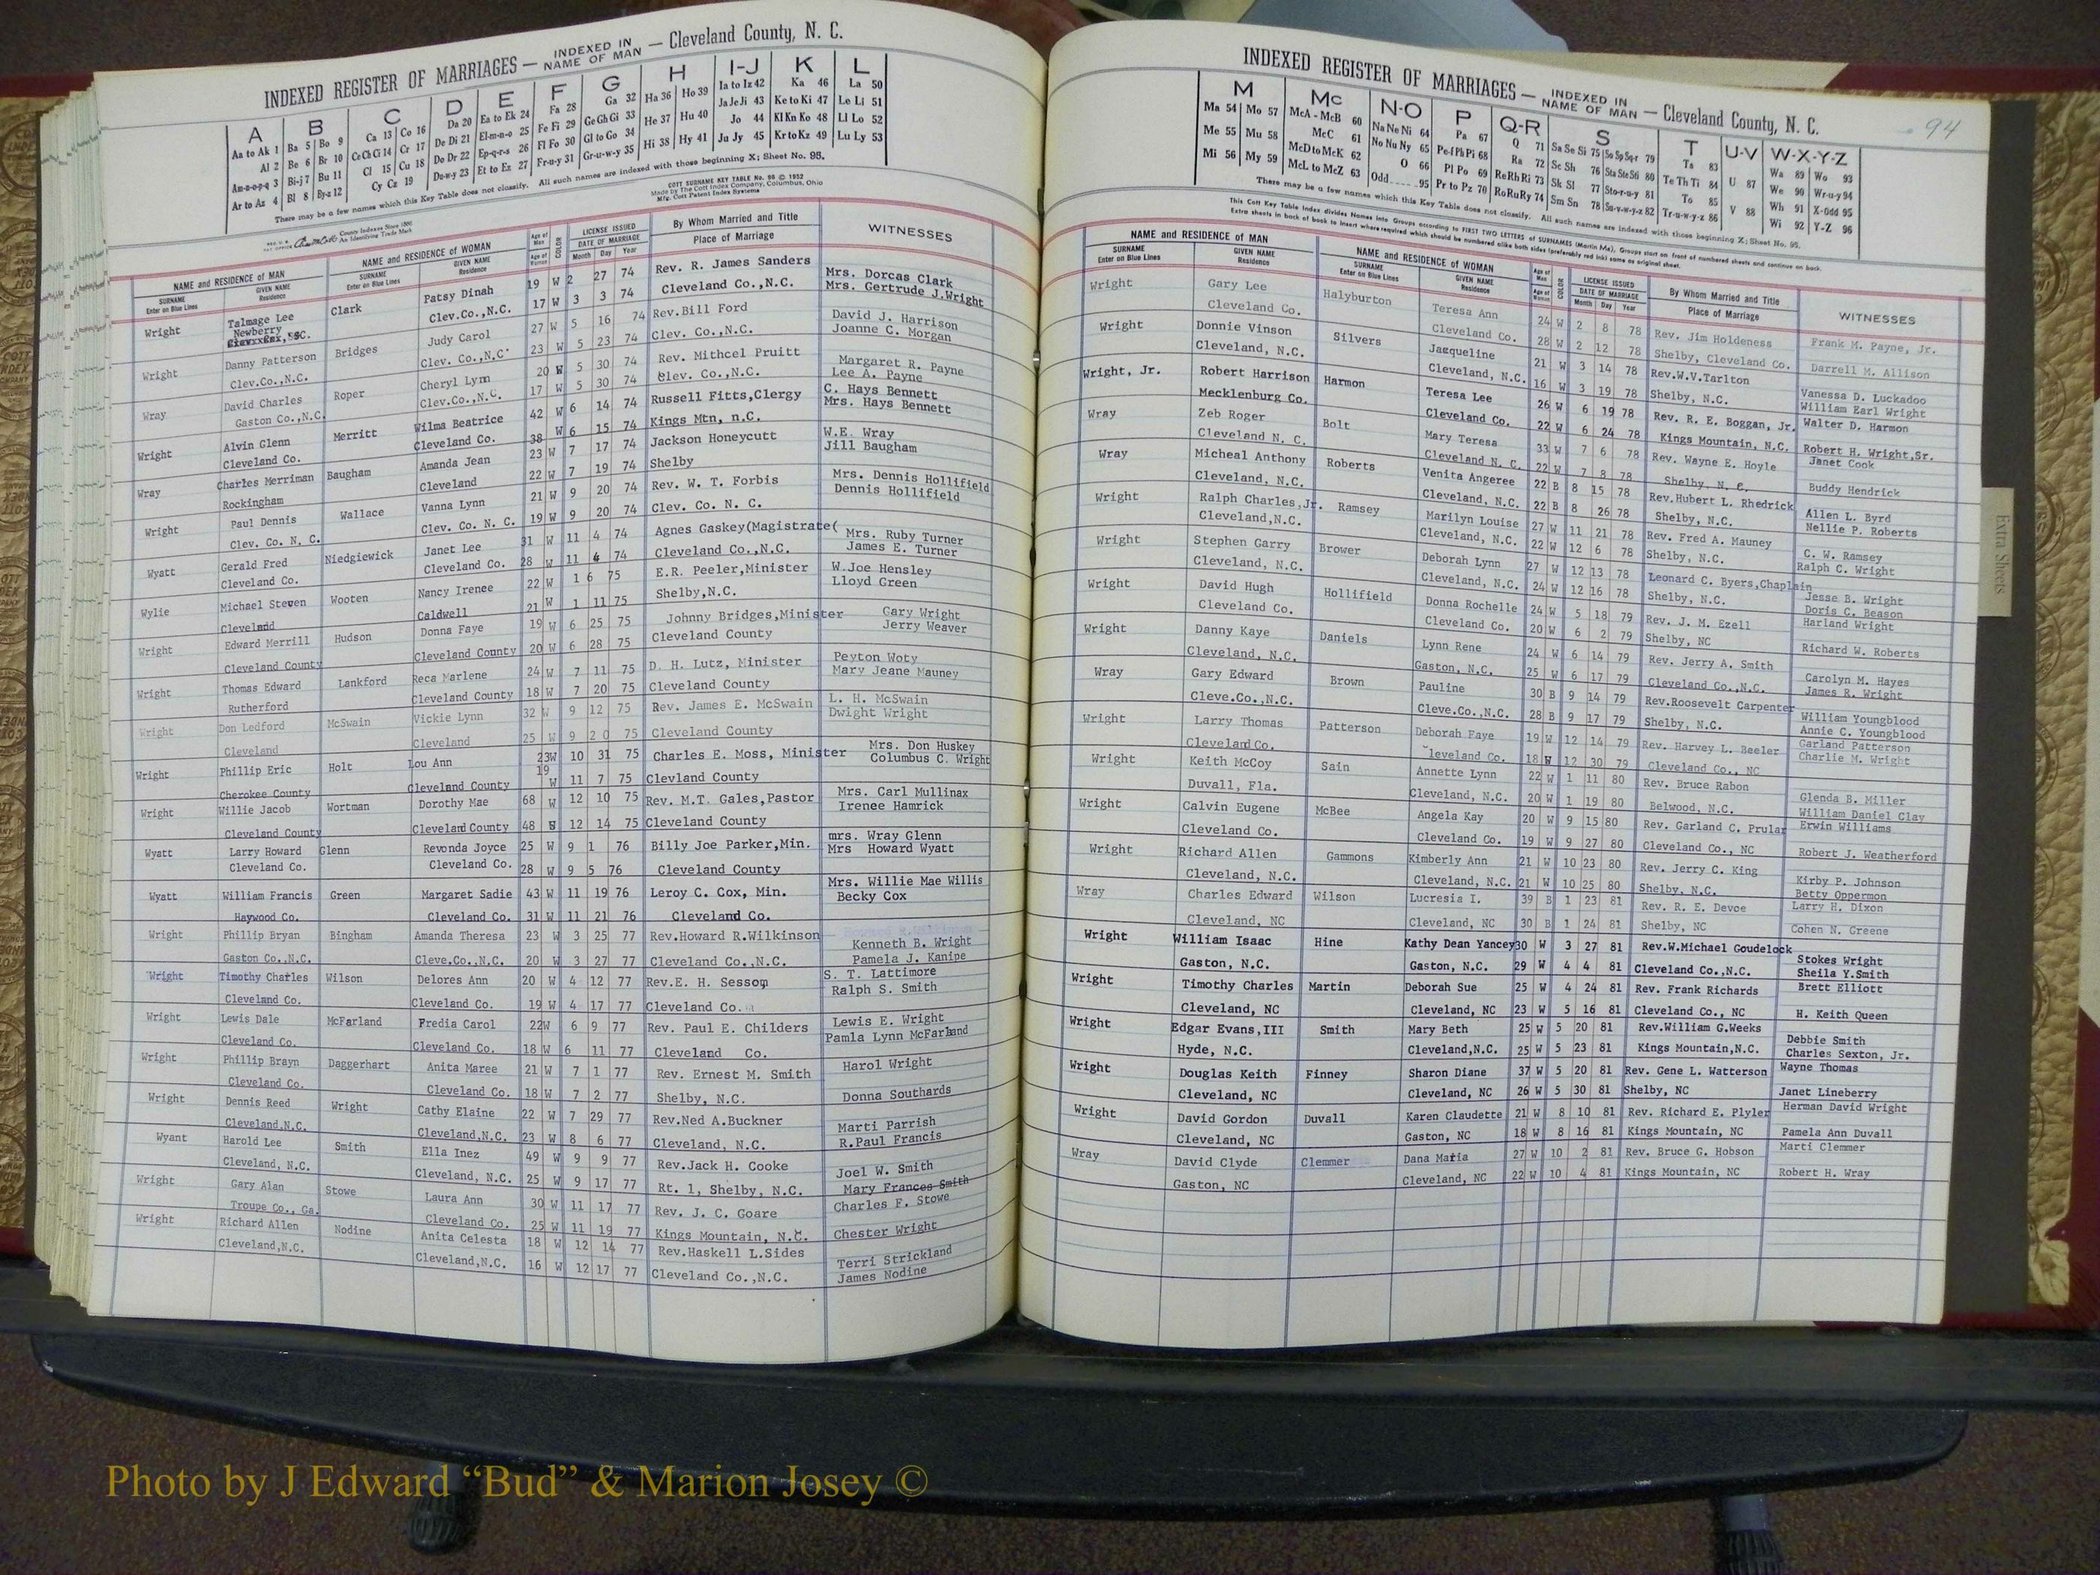 INDEXED REGISTER OF MARRIAGES — INDEXED IN NAME OF MAN — Cleveland County, N. C.
A B C D E F G H I-J K L
Aa to Ak 1 Ba 5 Bo 9 Ca 13 Co 16 Da 20 Ea to Ek 24 Fa 28 Ga 32 Ha 36 Ho 39 Ia to Iz 42 Ka 46 La 50
Al 2 Be 6 Br 10 Ce Ch Ci 14 Cr 17 De Di 21 El-m-n-o 25 Fe Fi 29 Ge Gh Gi 33 He 37 Hu 40 Ja Je Ji 43 Ke to Ki 47 Le Li 51
Am-n-o-p-q 3 Bi-j 7 Bu 11 Cl 15 Cu 18 Do Dr 22 Ep-q-r-s 26 Fl Fo 30 Gl to Go 34 Hi 38 Hy 41 Jo 44 Kl Kn Ko 48 Ll Lo 52
Ar to Az 4 Bl 8 By-z 12 Cy Cz 19 Du-w-y 23 Et to Ez 27 Fr-u-y 31 Gr-u-w-y 35 Ju Jy 45 Kr to Kz 49 Lu Ly 53
There may be a few names which this Key Table does not classify. All such names are indexed with those beginning X; Sheet No. 95.
COTT SURNAME KEY TABLE No. 96 © 1952
Made by The Cott Index Company, Columbus, Ohio
Mfg. Cott Patent Index Systems
County Indexes Since 1888
An Identifying Trade Mark
NAME and RESIDENCE of MAN NAME and RESIDENCE of WOMAN Age of Man Age of Woman COLOR LICENSE ISSUED DATE OF MARRIAGE Month Day Year By Whom Married and Title Place of Marriage WITNESSES
SURNAME Enter on Blue Lines GIVEN NAME Residence SURNAME Enter on Blue Lines GIVEN NAME Residence
Wright Talmage Lee Clark Patsy Dinah 19 W 2 27 74 Rev. R. James Sanders Mrs. Dorcas Clark
Newberry S.C. Clev.Co.,N.C. 17 W 3 3 74 Cleveland Co.,N.C. Mrs. Gertrude J.Wright
Wright Danny Patterson Bridges Judy Carol 27 W 5 16 74 Rev.Bill Ford David J. Harrison
Clev.Co.,N.C. Clev. Co.,N.C. 23 W 5 23 74 Clev. Co.,N.C. Joanne C. Morgan
Wray David Charles Roper Cheryl Lynn 20 W 5 30 74 Rev. Mithcel Pruitt Margaret R. Payne
Gaston Co.,N.C. Clev.Co.,N.C. 17 W 5 30 74 Clev. Co.,N.C. Lee A. Payne
Wright Alvin Glenn Merritt Wilma Beatrice 42 W 6 14 74 Russell Fitts,Clergy C. Hays Bennett
Cleveland Co. Cleveland Co. 38 W 6 15 74 Kings Mtn, n.C. Mrs. Hays Bennett
Wray Charles Merriman Baugham Amanda Jean 23 W 7 17 74 Jackson Honeycutt W.E. Wray
Rockingham Cleveland 22 W 7 19 74 Shelby Jill Baugham
Wright Paul Dennis Wallace Vanna Lynn 21 W 9 20 74 Rev. W. T. Forbis Mrs. Dennis Hollifield
Clev. Co. N. C. Clev. Co. N. C. 19 W 9 20 74 Clev. Co. N. C. Dennis Hollifield
Wyatt Gerald Fred Niedgiewick Janet Lee 31 W 11 4 74 Agnes Gaskey(Magistrate( Mrs. Ruby Turner
Cleveland Co. Cleveland Co. 28 W 11 4 74 Cleveland Co.,N.C. James E. Turner
Wylie Michael Steven Wooten Nancy Irenee 22 W 1 6 75 E.R. Peeler,Minister W.Joe Hensley
Cleveland Caldwell 21 W 1 11 75 Shelby,N.C. Lloyd Green
Wright Edward Merrill Hudson Donna Faye 19 W 6 25 75 Johnny Bridges,Minister Gary Wright
Cleveland County Cleveland County 20 W 6 28 75 Cleveland County Jerry Weaver
Wright Thomas Edward Lankford Reca Marlene 24 W 7 11 75 D. H. Lutz, Minister Peyton Woty
Rutherford Cleveland County 18 W 7 20 75 Cleveland County Mary Jeane Mauney
Wright Don Ledford McSwain Vickie Lynn 32 W 9 12 75 Rev. James E. McSwain L. H. McSwain
Cleveland Cleveland 25 W 9 20 75 Cleveland County Dwight Wright
Wright Phillip Eric Holt Lou Ann 23 W 10 31 75 Charles E. Moss, Minister Mrs. Don Huskey
Cherokee County Cleveland County 19 W 11 7 75 Clevland County Columbus C. Wright
Wright Willie Jacob Wortman Dorothy Mae 68 W 12 10 75 Rev. M.T. Gales,Pastor Mrs. Carl Mullinax
Cleveland County Cleveland County 48 W 12 14 75 Cleveland County Irenee Hamrick
Wyatt Larry Howard Glenn Revonda Joyce 25 W 9 1 76 Billy Joe Parker,Min. mrs. Wray Glenn
Cleveland Co. Cleveland Co. 28 W 9 5 76 Cleveland County Mrs Howard Wyatt
Wyatt William Francis Green Margaret Sadie 43 W 11 19 76 Leroy C. Cox, Min. Mrs. Willie Mae Willis
Haywood Co. Cleveland Co. 31 W 11 21 76 Cleveland Co. Becky Cox
Wright Phillip Bryan Bingham Amanda Theresa 23 W 3 25 77 Rev.Howard R.Wilkinson Kenneth B. Wright
Gaston Co.,N.C. Cleve.Co.,N.C. 20 W 3 27 77 Cleveland Co.,N.C. Pamela J. Kanipe
Wright Timothy Charles Wilson Delores Ann 20 W 4 12 77 Rev.E. H. Sessom S. T. Lattimore
Cleveland Co. Cleveland Co. 19 W 4 17 77 Cleveland Co. Ralph S. Smith
Wright Lewis Dale McFarland Fredia Carol 22W 6 9 77 Rev. Paul E. Childers Lewis E. Wright
Cleveland Co. Cleveland Co. 18 W 6 11 77 Cleveland Co. Pamla Lynn McFarland
Wright Phillip Brayn Daggerhart Anita Maree 21 W 7 1 77 Rev. Ernest M. Smith Harol Wright
Cleveland Co. Cleveland Co. 18 W 7 2 77 Shelby, N.C. Donna Southards
Wright Dennis Reed Wright Cathy Elaine 22 W 7 29 77 Rev.Ned A.Buckner Marti Parrish
Cleveland,N.C. Cleveland,N.C. 23 W 8 6 77 Cleveland, N.C. R.Paul Francis
Wyant Harold Lee Smith Ella Inez 49 W 9 9 77 Rev.Jack H. Cooke Joel W. Smith
Cleveland, N.C. Cleveland, N.C. 25 W 9 17 77 Rt. 1, Shelby, N.C. Mary Frances Smith
Wright Gary Alan Stowe Laura Ann 30 W 11 17 77 Rev. J. C. Goare Charles F. Stowe
Troupe Co., Ga. Cleveland Co. 25 W 11 19 77 Kings Mountain, N.C. Chester Wright
Wright Richard Allen Nodine Anita Celesta 18 W 12 14 77 Rev.Haskell L.Sides Terri Strickland
Cleveland,N.C. Cleveland,N.C. 16 W 12 17 77 Cleveland Co.,N.C. James Nodine
INDEXED REGISTER OF MARRIAGES — INDEXED IN NAME OF MAN — Cleveland County, N. C.
94
M Mc N-O P Q-R S T U-V W-X-Y-Z
Ma 54 Mo 57 McA - McB 60 Na Ne Ni 64 Pa 67 Q 71 Sa Se Si 75 So Sp Sq-r 79 Ta 83 U 87 Wa 89 Wo 93
Me 55 Mu 58 McC 61 No Nu Ny 65 Pe-f Ph Pi 68 Ra 72 Sc Sh 76 Sta Ste Sti 80 Te Th Ti 84 V 88 We 90 Wr-u-y 94
Mi 56 My 59 McD to McK 62 O 66 Pl Po 69 Re Rh Ri 73 Sk Sl 77 Sto-r-u-y 81 To 85 Wh 91 X-Odd 95
McL to McZ 63 Odd 95 Pr to Pz 70 Ro Ru Ry 74 Sm Sn 78 Su-v-w-y-z 82 Tr-u-w-y-z 86 Wi 92 Y-Z 96
There may be a few names which this Key Table does not classify. All such names are indexed with those beginning X; Sheet No. 95.
This Cott Key Table Index divides Names into Groups according to FIRST TWO LETTERS of SURNAMES (Martin Ma), Groups start on front of numbered sheets and continue on back.
Extra sheets in back of book to insert where required which should be numbered alike both sides (preferably red ink) same as original sheet.
NAME and RESIDENCE of MAN NAME and RESIDENCE of WOMAN Age of Man Age of Woman COLOR LICENSE ISSUED DATE OF MARRIAGE Month Day Year By Whom Married and Title Place of Marriage WITNESSES
SURNAME Enter on Blue Lines GIVEN NAME Residence SURNAME Enter on Blue Lines GIVEN NAME Residence
Wright Gary Lee Halyburton Teresa Ann 24 W 2 8 78 Rev. Jim Holdeness Frank M. Payne, Jr.
Cleveland Co. Cleveland Co. 28 W 2 12 78 Shelby, Cleveland Co. Darrell M. Allison
Wright Donnie Vinson Silvers Jacqueline 21 W 3 14 78 Rev.W.V.Tarlton Vanessa D. Luckadoo
Cleveland, N.C. Cleveland, N.C. 16 W 3 19 78 Shelby, N.C. William Earl Wright
Wright, Jr. Robert Harrison Harmon Teresa Lee 26 W 6 19 78 Rev. R. E. Boggan, Jr. Walter D. Harmon
Mecklenburg Co. Cleveland Co. 22 W 6 24 78 Kings Mountain, N.C. Robert H. Wright,Sr.
Wray Zeb Roger Bolt Mary Teresa 33 W 7 6 78 Rev. Wayne E. Hoyle Janet Cook
Cleveland N. C. Cleveland N. C. 22 W 7 8 78 Shelby, N. C. Buddy Hendrick
Wray Micheal Anthony Roberts Venita Angeree 22 B 8 15 78 Rev.Hubert L. Rhedrick Allen L. Byrd
Cleveland, N.C. Cleveland, N.C. 22 B 8 26 78 Shelby, N.C. Nellie P. Roberts
Wright Ralph Charles,Jr. Ramsey Marilyn Louise 27 W 11 21 78 Rev. Fred A. Mauney C. W. Ramsey
Cleveland,N.C. Cleveland, N.C. 22 W 12 6 78 Shelby, N.C. Ralph C. Wright
Wright Stephen Garry Brower Deborah Lynn 27 W 12 13 78 Leonard C. Byers,Chaplain Jesse B. Wright
Cleveland, N.C. Cleveland, N.C. 24 W 12 16 78 Shelby, N.C. Doris C. Beason
Wright David Hugh Hollifield Donna Rochelle 24 W 5 18 79 Rev. J. M. Ezell Harland Wright
Cleveland Co. Cleveland Co. 20 W 6 2 79 Shelby, NC Richard W. Roberts
Wright Danny Kaye Daniels Lynn Rene 24 W 6 14 79 Rev. Jerry A. Smith Carolyn M. Hayes
Cleveland, N.C. Gaston, N.C. 25 W 6 17 79 Cleveland Co.,N.C. James R. Wright
Wray Gary Edward Brown Pauline 30 B 9 14 79 Rev.Roosevelt Carpenter William Youngblood
Cleve.Co.,N.C. Cleve.Co.,N.C. 28 B 9 17 79 Shelby, N.C. Annie C. Youngblood
Wright Larry Thomas Patterson Deborah Faye 19 W 12 14 79 Rev. Harvey L. Beeler Garland Patterson
Cleveland Co. leveland Co. 18 W 12 30 79 Cleveland Co., NC Charlie M. Wright
Wright Keith McCoy Sain Annette Lynn 22 W 1 11 80 Rev. Bruce Rabon Glenda B. Miller
Duvall, Fla. Cleveland, N.C. 20 W 1 19 80 Belwood, N.C. William Daniel Clay
Wright Calvin Eugene McBee Angela Kay 20 W 9 15 80 Rev. Garland C. Prular Erwin Williams
Cleveland Co. Cleveland Co. 19 W 9 27 80 Cleveland Co., NC Robert J. Weatherford
Wright Richard Allen Gammons Kimberly Ann 21 W 10 23 80 Rev. Jerry C. King Kirby P. Johnson
Cleveland, N.C. Cleveland, N.C. 21 W 10 25 80 Shelby, N.C. Betty Oppermon
Wray Charles Edward Wilson Lucresia I. 39 B 1 23 81 Rev. R. E. Devoe Larry H. Dixon
Cleveland, NC Cleveland, NC 30 B 1 24 81 Shelby, NC Cohen N. Greene
Wright William Isaac Hine Kathy Dean Yancey 30 W 3 27 81 Rev.W.Michael Goudelock Stokes Wright
Gaston, N.C. Gaston, N.C. 29 W 4 4 81 Cleveland Co.,N.C. Sheila Y.Smith
Wright Timothy Charles Martin Deborah Sue 25 W 4 24 81 Rev. Frank Richards Brett Elliott
Cleveland, NC Cleveland, NC 23 W 5 16 81 Cleveland Co., NC H. Keith Queen
Wright Edgar Evans,III Smith Mary Beth 25 W 5 20 81 Rev.William G.Weeks Debbie Smith
Hyde, N.C. Cleveland,N.C. 25 W 5 23 81 Kings Mountain,N.C. Charles Sexton, Jr.
Wright Douglas Keith Finney Sharon Diane 37 W 5 20 81 Rev. Gene L. Watterson Wayne Thomas
Cleveland, NC Cleveland, NC 26 W 5 30 81 Shelby, NC Janet Lineberry
Wright David Gordon Duvall Karen Claudette 21 W 8 10 81 Rev. Richard E. Plyler Herman David Wright
Cleveland, NC Gaston, NC 18 W 8 16 81 Kings Mountain, NC Pamela Ann Duvall
Wray David Clyde Clemmer Dana Maria 27 W 10 2 81 Rev. Bruce G. Hobson Marti Clemmer
Gaston, NC Cleveland, NC 22 W 10 4 81 Kings Mountain, NC Robert H. Wray
Extra Sheets
Photo by J Edward “Bud” & Marion Josey ©